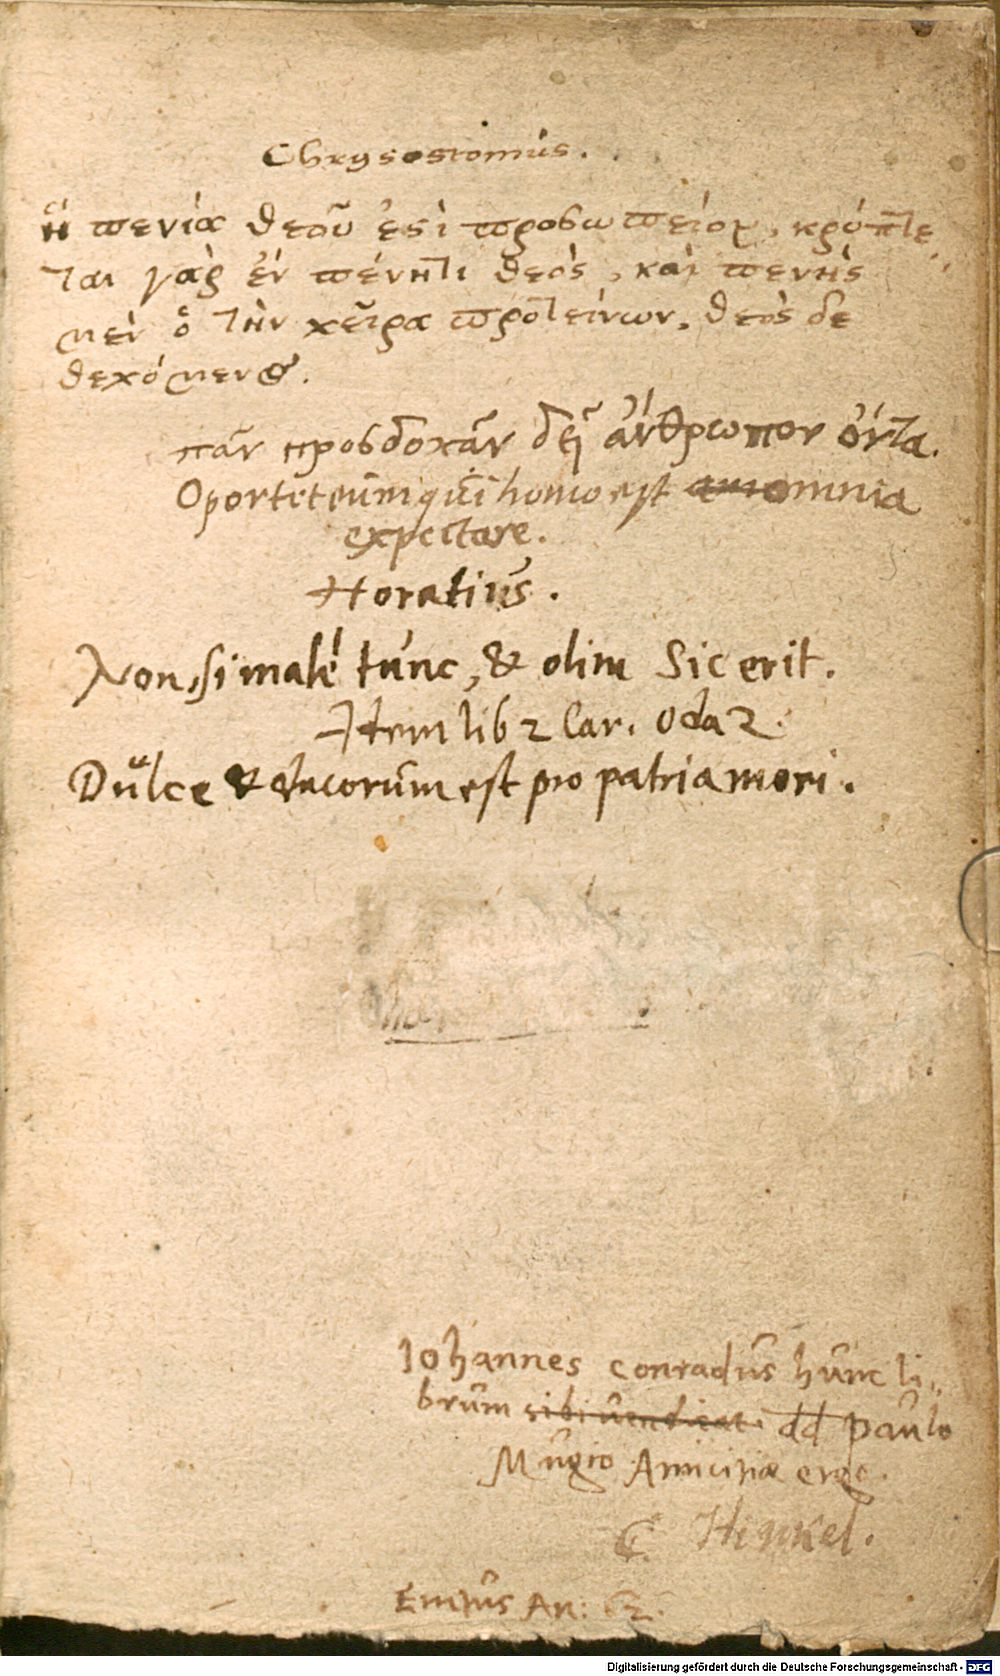 Chrysostomus.
ἡ πενία θεοῦ ἐστὶ προσωπεῖον, κρύπτε
ται γὰρ ἐν πένητι θεὸς, καὶ πένης
μὲν ὁ τὴν χεῖρα προτείνων. θεὸς δε
δεχόμενος.
πᾶν προσδοκᾶν δεῖ ἄνθρωπον ὄντα.
Oportet eum qui homo est omnia
expectare.
Horatius.
Non, si malè tunc, & olim Sic erit.
Item lib 2 Car. Oda 2.
Dulce & decorum est pro patria mori.
Iohannes Conradus hunc li-
brum sibi uendicat. dd Paulo
Mugio Amicitiæ ergo.
C. Henkel.
Emtus An: 62.
Digitalisierung gefördert durch die Deutsche Forschungsgemeinschaft - DFG